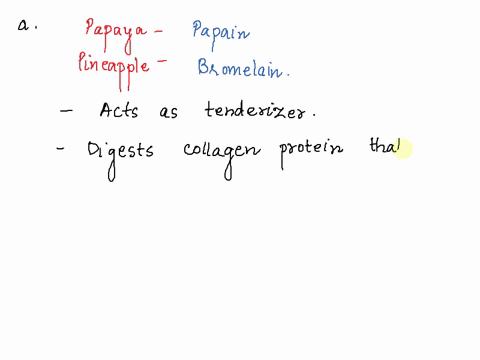 a. Papaya - Papain
Pineapple - Bromelain.
- Acts as tenderizer.
- Digests collagen protein that